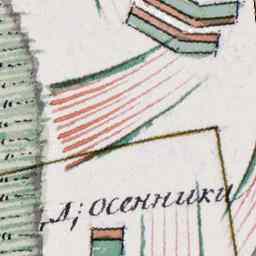 Д; осенники